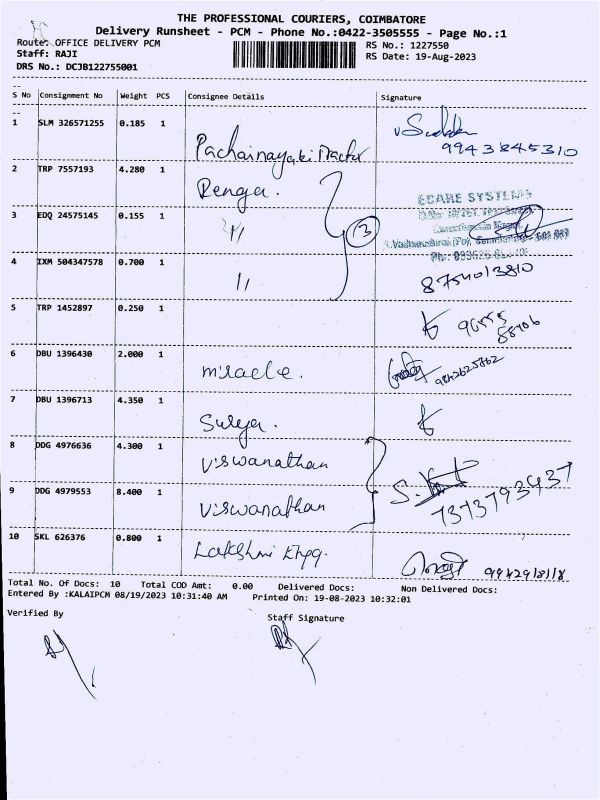 THE PROFESSIONAL COURIERS, COIMBATORE
Delivery Runsheet - PCM - Phone No.:0422-3505555 - Page No.:1
Route: OFFICE DELIVERY PCM RS No.: 1227550
Staff: RAJI RS Date: 19-Aug-2023
DRS No.: DCJB122755001
S No Consignment No Weight PCS Consignee Details Signature
1 SLM 326571255 0.185 1 Pachainayaki
9943845310
2 TRP 7557193 4.280 1 Renga.
ECARE SYSTEMS
3 EDQ 24575145 0.155 1 〃 3
4 IXM 504347578 0.700 1 〃 8754013810
5 TRP 1452897 0.250 1 96555
88706
6 DBU 1396430 2.000 1 miracle. 9842625862
7 DBU 1396713 4.350 1 Surya.
8 DDG 4976636 4.300 1 Viswanathan
9 DDG 4979553 8.400 1 Viswanathan 7373793437
10 SKL 626376 0.800 1 Lakshmi
Total No. Of Docs: 10 Total COD Amt: 0.00 Delivered Docs: Non Delivered Docs:
Entered By :KALAIPCM 08/19/2023 10:31:40 AM Printed On: 19-08-2023 10:32:01
Verified By Staff Signature